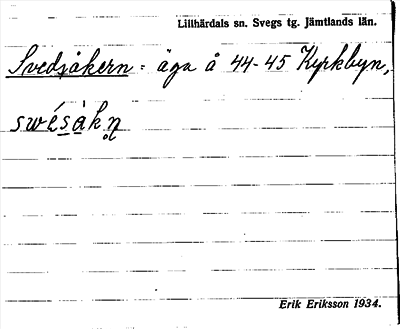 Lillhärdals sn. Svegs tg. Jämtlands län.
Svedjåkern = äga å 44-45 Kyrkbyn,
swésàkn̥
Erik Eriksson 1934.